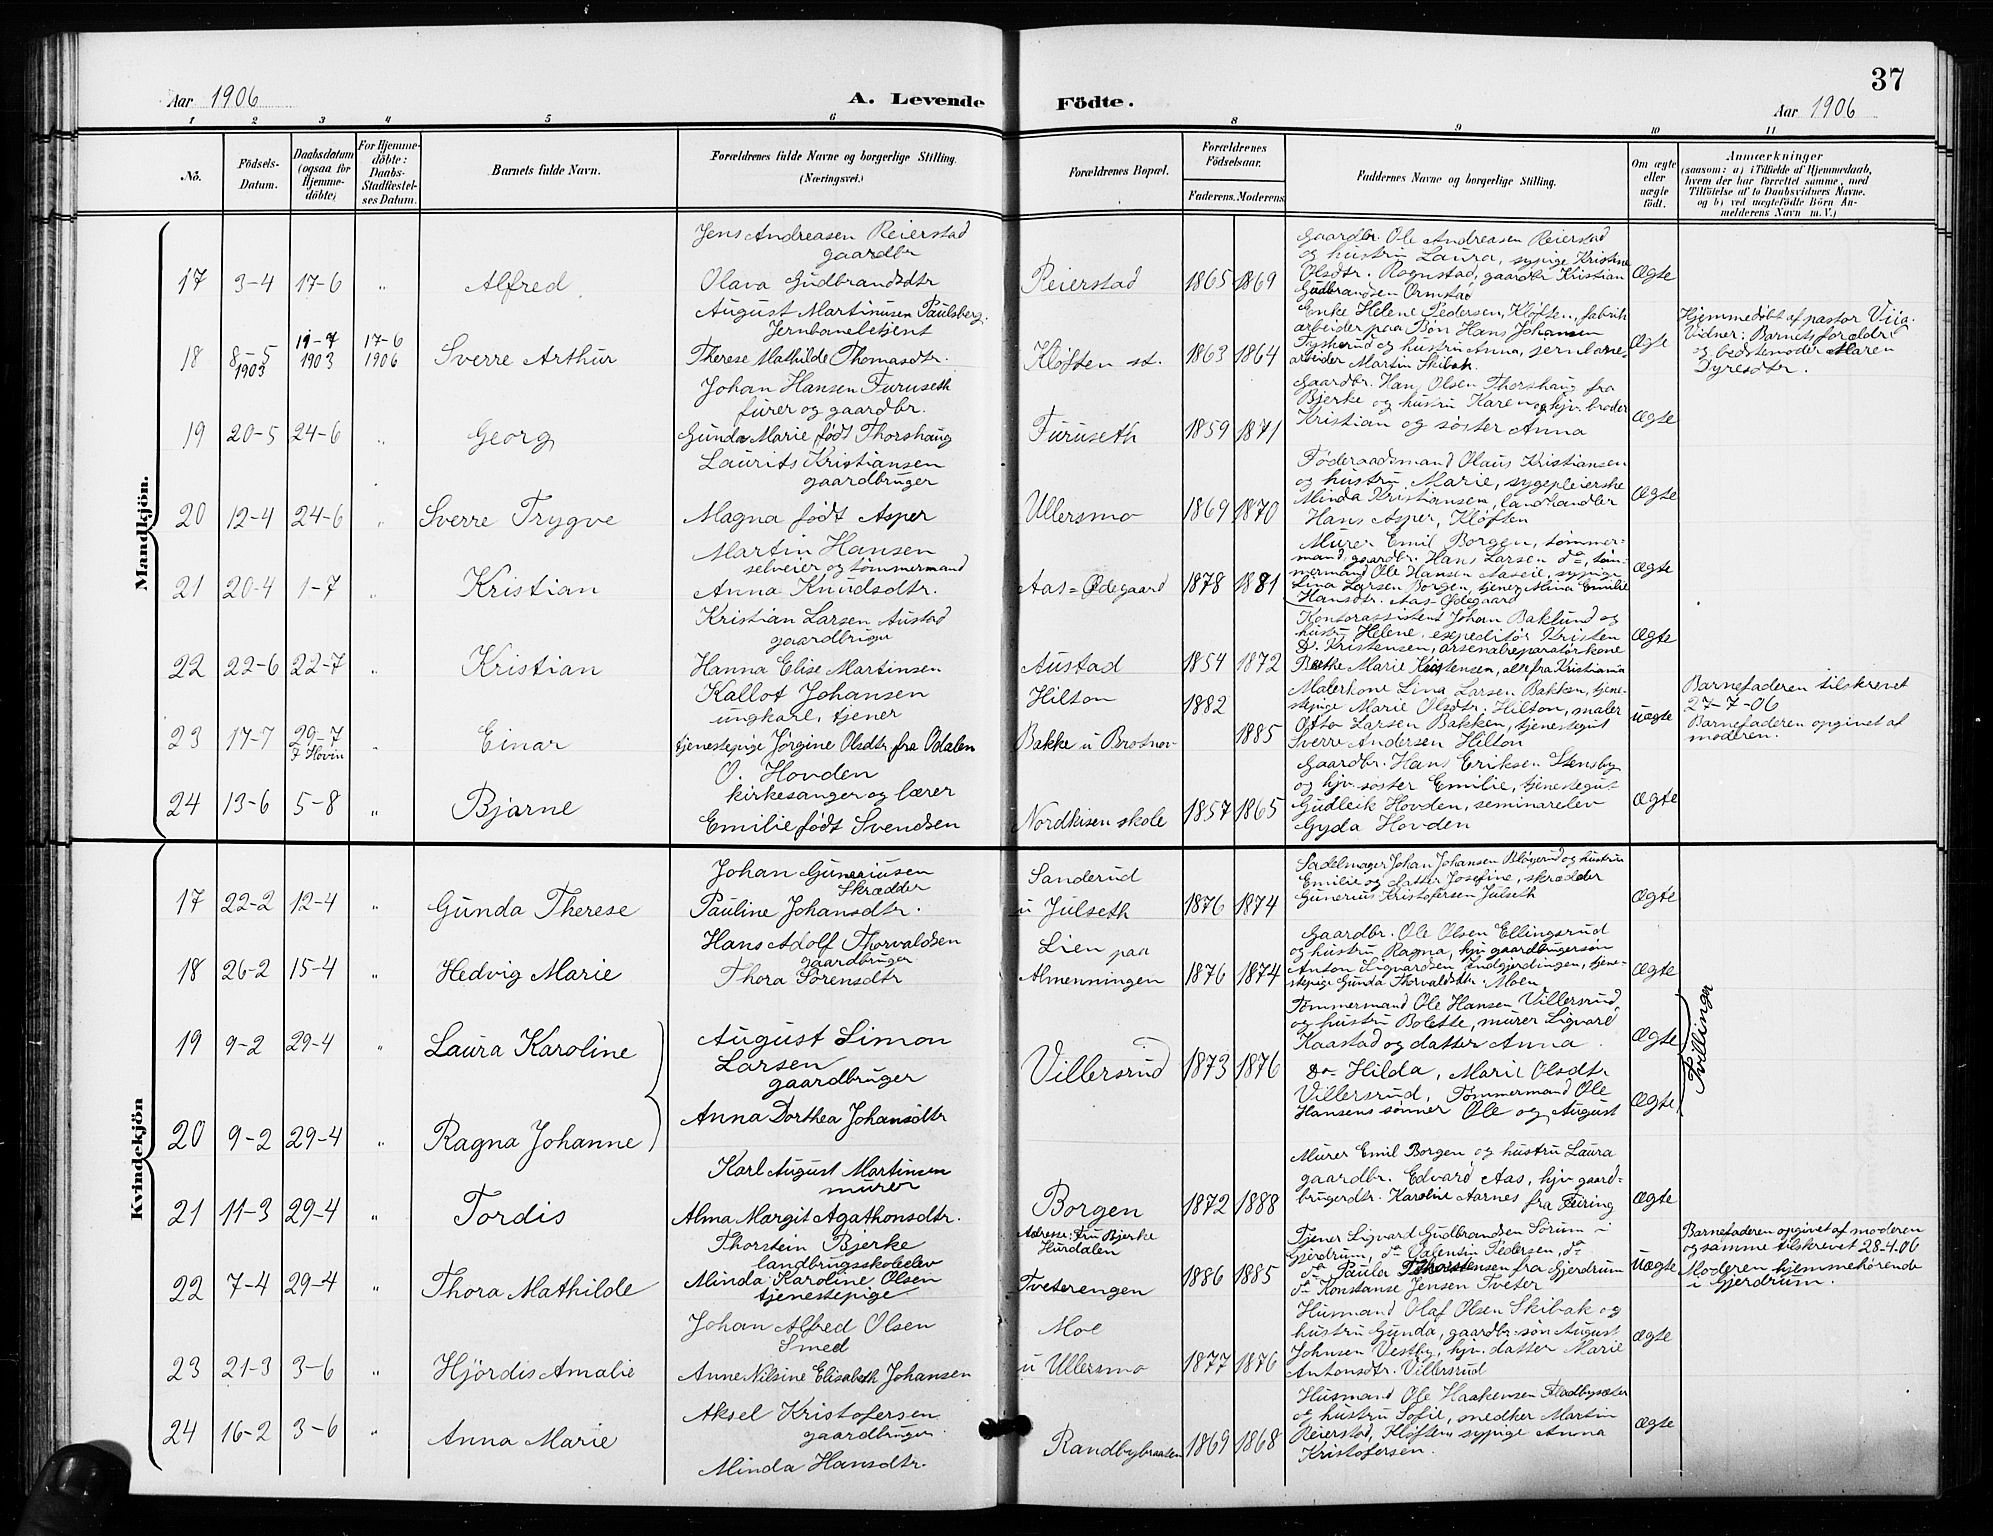 37
Aar 1906
A. Levende Födte.
Aar 1906
1 2 3 4 5 6 8 9 10 11
No.
Födsels-Datum.
Daabsdatum (ogsaa for Hjemme-döbte)
For Hjemme-döbte: Daabs-Stadfæstel-ses Datum.
Barnets fulde Navn.
Forældrenes fulde Navne og borgerlige Stilling. (Næringsvei.)
Forældrenes Bopæl.
Forældrenes Födselsaar.
Faderens. Moderens.
Faddernes Navne og borgerlige Stilling.
Om ægte eller uægte födt.
Anmærkninger
(saasom: a) i Tilfælde af Hjemmedaab, hvem der har forrettet samme, med Tilföielse af to Daabsvidners Navne. og b) ved uægtefödte Börn An-melderens Navn m. V.)
Mandkjön.
17 3-4 17-6 " Alfred
Jens Andreasen Reierstad
gaardbr
Olava Gudbrandsdtr
Reierstad 1865 1869
Gaardbr. Ole Andreasen Reierstad
og hustru Laura, sypige Kristine
Olsdtr. Rognstad, gaardbr Kristian
Gudbrandsen Ormstad
Ægte
18 8-5 1903 19-7 1903 17-6 1906 Sverre Arthur
August Martinusen Paulsberg.
Jernbanebetjent
Therese Mathilde Thomasdtr.
Kløften st. 1863 1864
Enke Helene Pedersen, Kløften, fabrik
arbeider paa Bøn Hans Johansen
og hustru Anna, jernbane-
arbeider Martin Skibak.
Ægte
Hjemmedøbt af pastor
Vidner: Barnets forældre
og bedstemoder Maren
Dyresdtr.
19 20-5 24-6 " Georg
Johan Hansen Furuseth
furer og gaardbr.
Gunda Marie født Thorshaug
Furuseth 1859 1871
Gaardbr. Hans Olsen Thorshaug fra
Bjerke og hustru Karen, hjv. broder
Kristian og søster Anna
Ægte
20 12-4 24-6 " Sverre Trygve
Laurits Kristiansen
gaardbruger
Magna født Asper
Ullersmo 1869 1870
Føderaadsmand Olaus Kristiansen
og hustru Marie, sygepleierske
Minda Kristiansen, landhandler
Hans Asper, Kløften
Ægte
21 20-4 1-7 " Kristian
Martin Hansen
selveier og tømmermand
Anna Knudsdtr.
Aas=Ødegaard 1878 1881
Murer Emil Borgen, tømmer-
mand, gaardbr. Hans Larsen da, tøm-
mermand Ole Hansen Aaseie, sypige
Lina Larsen Borgen, tjener Alina Emilie
Hansdtr. Aas-Ødegaard
Ægte
22 22-6 22-7 " Kristian
Kristian Larsen Austad
gaardbruger
Hanna Elise Martinsen
Austad 1854 1872
Kontorassistent Johan Baklund og
hustru Helene, expeditør Kristen
D. Kristensen, arsenalreparatørkone
Marie Kristensen, alle fra Kristiania
Ægte
23 17-7 29-7 F Hovin " Einar
Kallot Johansen
ungkarl, tjener
tjenestepige Jørgine Olsdtr fra Odalen
Hilton 1882
Bakke u Brotnov 1885
Malerkone Lina Larsen Bakken, tjene-
stepige Marie Olsdtr. Hilton, maler
Otto Larsen Bakken, tjenestegut
Sverre Andersen Hilton
uægte
Barnefaderen tilskrevet
27-7-06
Barnefaderen opgivet af
moderen.
24 13-6 5-8 " Bjarne
O. Hovden
kirkesanger og lærer
Emilie født Svendsen
Nordkisen skole 1857 1865
Gaardbr. Hans Eriksen Stensby
og hjv. søster Emilie, tjenestegut
Gudleik Hovden, seminarelev
Gyda Hovden
Ægte
Kvindekjön
17 22-2 12-4 " Gunda Therese
Johan Guneriusen
Skrædder
Pauline Johansdtr.
Sanderud
u Julseth 1876 1874
Sadelmager Johan Johansen og hustru
Emilie og datter Josefine, skrædder
Gunerius Kristofersen Julseth
Ægte
18 26-2 15-4 " Hedvig Marie
Hans Adolf Thorvaldsen
gaardbruger
Thora Sørensdtr
Lien paa
Almenningen 1876 1874
Gaardbr. Ole Olsen Ellingsrud
og hustru Ragna, hjv gaardbrugersøn
Anton Sigvardsen Indgjerdingen, tjene-
stepige Gunda Thorvaldsdtr. Moen
Ægte
19 9-2 29-4 " Laura Karoline
August Simon
Larsen
gaardbruger
Anna Dorthea Johansdtr
Villersrud 1873 1876
Tømmermand Ole Hansen Villersrud,
og hustru Bolette, murer Sigvard
Kaastad og datter Anna.
Ægte
Tvillinger
20 9-2 29-4 " Ragna Johanne
Do Hilda, Marie Olsdtr
Villersrud, Tømmermand Ole
Hansens sønner Ole og August
Ægte
21 11-3 29-4 " Tordis
Karl August Martinsen
murer
Alma Margit Agathonsdtr.
Borgen 1872 1888
Murer Emil Borgen, og hustru Laura
gaardbr. Edvard Aas, hjv gaard-
brugerdtr. Karoline Aarnes fra Feiring
Ægte
22 7-4 29-4 " Thora Mathilde
Thorstein Bjerke
landbrugsskoleelev
Minda Karoline Olsen
tjenestepige
Adresse: Fru Bjerke
Hurdalen
Tveterengen 1886 1885
Tjener Sigvard Gudbrandsen Sørum i
Gjerdrum, da Valentin Pedersen, da
da Paula Thorstensen fra Gjerdrum
da Konstanse Jensen Tveter
uægte
Barnefaderen opgivet af moderen
og samme tilskrevet 28.4.06
Moderen hjemmehørende
i Gjerdrum.
23 21-3 3-6 " Hjördis Amalie
Johan Alfred Olsen
Smed
Anne Nilsine Elisabeth Johansen
Moe
u Ullersmo 1877 1876
Husmand Olaf Olsen Skibak og
hustru Gunda, gaardbr.søn August
Johnsen Vestby, hjv. datter Marie
Antonsdtr. Villersrud
Ægte
24 16-2 3-6 " Anna Marie
Aksel Kristofersen
gaardbruger
Minda Hansdtr.
Randbybraaten 1869 1868
Husmand Ole Haakensen Fladbysæter
og hustru Sofie, snedker Martin
Reierstad, Kløften, sypige Anna
Kristofersen.
Ægte